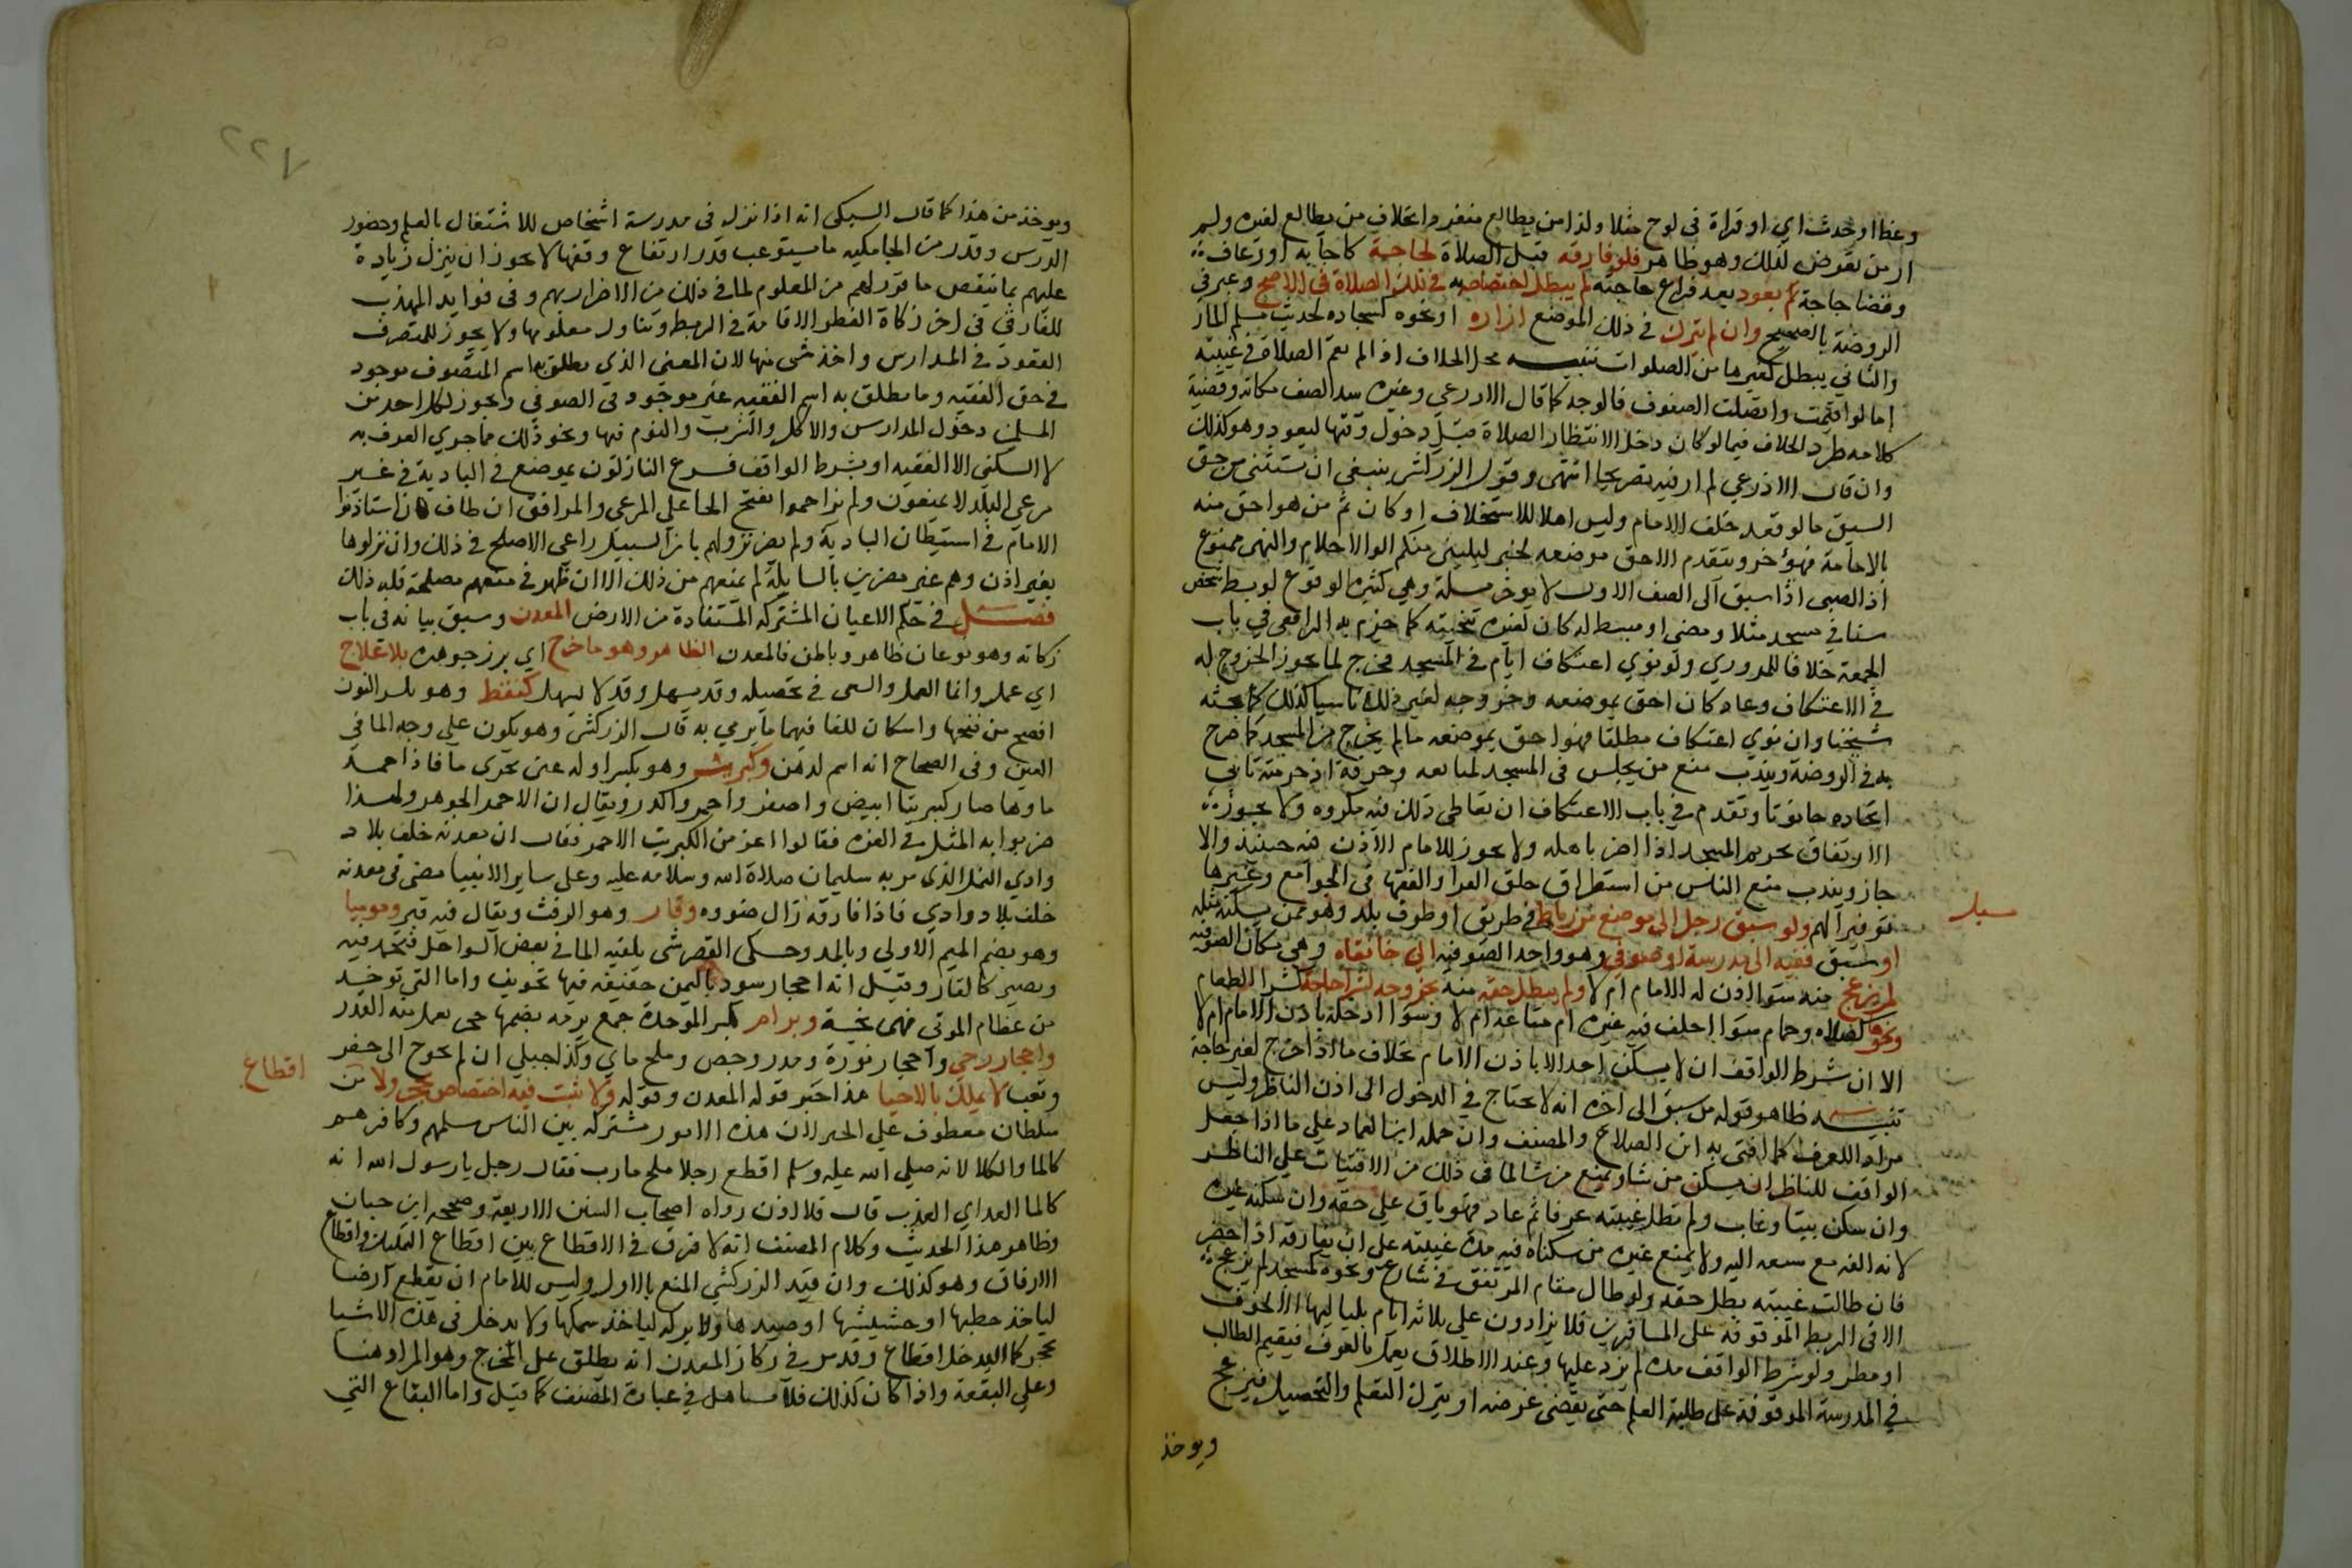 وعظا او حديث اي او قراة في لوح مثلا ولذا من يطالع منفردا بخلاف من يطالع لغيره ولم
ار من تعرض لذلك وهو ظاهر فلو فارقه قبل الصلاة لحاجة كاجابة او رعاف
وقضا حاجة ثم يعود بعد فراغ حاجته لم يبطل اختصاصه في تلك الصلاة في الاصح وعبر في
الروضة بالصحيح وان لم يترك في ذلك الموضع ازاره او نحوه كسجاده لحديث مسلم المار
والثاني يبطل كغيرها من الصلوات تنبيه محل الخلاف اذا لم تقم الصلاة في غيبته
اما لو اقيمت واتصلت الصفوف فالوجه كما قال الاذرعي وغيره سد الصف مكانه وقضية
كلامه طرد الخلاف فيما لو كان دخل لانتظار الصلاة قبل دخول وقتها ليعود وهو كذلك
وان قال الاذرعي لم ار فيه تصريحا انتهى وقول الزركشي ينبغي ان يستثنى من حق
السبق ما لو قعد خلف الامام وليس اهلا للاستخلاف او كان ثم من هو احق منه
بالامامة فيؤخر ويتقدم الاحق موضعه لخبر ليليني منكم اولوا الاحلام والنهى ممنوع
اذ الصبي اذا سبق الى الصف الاول لا يوخر مسلة وهي كثيرة الوقوع لو بسط شخص
شيئا في مسجد مثلا ومضى او بسط له كان لغيره تنحيته كما جزم به الرافعي في باب
الجمعة خلافا للمروزي ولو نوي اعتكاف ايام في المسجد فخرج لما يجوز الخروج له
في الاعتكاف وعاد كان احق بموضعه وخروجه لغير ذلك ناسيا كذلك كما بحثه
شيخنا وان نوي اعتكاف مطلقا فهو احق بموضعه ما لم يخرج من المسجد كما صرح
به في الروضة ويندب منع من يجلس في المسجد لمبايعه وحرفة اذ حرمته تابى
اتخاده حانوتا وتقدم في باب الاعتكاف ان تعاطي ذلك فيه مكروه ولا يجوز
الارتفاق بحريم المسجد اذا اضر باهله ولا يجوز للامام الاذن فيه حينئذ والا
جاز ويندب منع الناس من استطراق حلق القرا والفقها في الجوامع وغيرها
توقيرا لهم ولو سبق رجل الى موضع من رباط في طريق او طرف بلد وهو ممن يسكنه مثله
سبل
او سبق فقيه الى مدرسة او صوفي وهو واحد الصوفيه الي خانقاه وهي مكان الصوفيه
لم يزعج منه سوا اذن له الامام ام لا ولم يبطل حقه منه بخروجه لشرا حاجة كشرا الطعام
ونحوه كصلاه وحمام سوا اخلف فيه غيره ام متاعه ام لا وسوا ادخله باذن الامام ام لا
الا ان شرط الواقف ان لا يسكن احد الا باذن الامام بخلاف ما اذا خرج لغير حاجة
تنبيه ظاهر قوله من سبق الى اخره انه لا يحتاج في الدخول الى اذن الناظر وليس
مرادا للعرف كما افتى به ابن الصلاح والمصنف وان حمله ابن العماد علي ما اذا جعل
الواقف للناظر ان يسكن من شا ويمنع من شا لما في ذلك من الافتيات علي الناظر
وان سكن بيتا وغاب ولم تطل غيبته عرفا ثم عاد فهو باق علي حقه وان سكنه غيره
لانه الفه مع سبقه اليه ولا يمنع غيره من سكناه فيه مدة غيبته علي ان يفارقه اذا حضر
فان طالت غيبته بطل حقه ولو طال مقام المرتفق في شارع ونحوه كمسجد لم يزعج
الا في الربط الموقوفة على المسافرين فلا يزادون علي ثلاثة ايام بلياليها الا لخوف
او مطر ولو شرط الواقف مدة لم يزد عليها وعند الاطلاق يعمل بالعرف فيقيم الطالب
في المدرسة الموقوفة على طلبة العلم حتى يقضي غرضه او يترك التعلم والتحصيل فيزعج
ويوخذ
٢٢٧
ويوخذ من هذا كما قال السبكي انه اذا نزل في مدرسة اشخاص للاشتغال بالعلم وحضور
الدرس وقدر من الجامكيه ما يستوعب قدر ارتفاع وقفها لا يجوز ان ينزل زيادة
عليهم بما ينقص ما قرر لهم من المعلوم لما في ذلك من الاضرار بهم وفي فوايد المهذب
للفارقي في اخر زكاة الفطر الاقامة في الربط وتناول معلومها ولا يجوز للمتصرف
القعود في المدارس واخذ شي منها لان المعنى الذي يطلق به اسم المتصوف موجود
في حق الفقيه وما يطلق به اسم الفقيه غير موجود في الصوفي ويجوز لكل احد من
المسلمين دخول المدارس والاكل والشرب والنوم فيها ونحو ذلك مما جري العرف به
لا السكنى الا الفقيه او بشرط الواقف فرع النازلون بموضع في البادية في غير
مرعى البلد لا يمنعون ولم يزاحموا بفتح الحا علي المرعى والمرافق ان طاف فان استاذنوا
الامام في استيطان البادية ولم يضر نزولهم بابن السبيل راعي الاصلح في ذلك وان نزلوها
بغير اذن وهم غير مضرين بالسابلة لم يمنعهم من ذلك الا ان ظهر في منعهم مصلحة فله ذلك
فصل في حكم الاعيان المشتركه المستفادة من الارض المعدن وسبق بيانه في باب
زكاته وهو نوعان ظاهر وباطن فالمعدن الظاهر وهو ما خرج اي برز جوهره بلا علاج
اي عمل وانما العمل والسعي في تحصيله وقد يسهل وقد لا يسهل كنفط وهو بكسر النون
افصح من فتحها واسكان الفا فيهما ما يرمي به قال الزركشي وهو يكون علي وجه الما في
العين وفي الصحاح انه اسم لدهن وكبريت وهو بكسر اوله عين تجري ما فاذا جمد
ماوها صار كبريتا ابيض واصفر واحمر واكدر ويقال ان الاحمر الجوهر ولهذا
ضربوا به المثل في العزه فقالوا اعز من الكبريت الاحمر فقال ان معدنه خلف بلاد
وادي النمل الذي مر به سليمان صلاة الله وسلامه عليه وعلى ساير الانبيا مضى في معدنه
خلف بلاد وادي فاذا فارقه زال ضووه وقار وهو الزفت ويقال فيه قير وموميا
وهو بضم الميم الاولي وبالمد وحكي القصر شي يلقيه الما في بعض السواحل فتجمد فيه
ويصير كالقار وقيل انه احجار سود باليمن خفيفه فيها تجويف واما التي توخذ
من عظام الموتي فهي نجسة وبرام بكسر الموحدة جمع برمه بضمها حجر يعمل منه القدر
واحجار رحي واحجار نورة ومدر وجص وملح ماي وكذا جبلي ان لم يحوج الى حفر
وتعب لا يملك بالاحيا هذا خبر قوله المعدن وقوله ولا ثبت فيه اختصاص بتحجر ولا من
اقطاع
سلطان معطوف علي الخبر لان هذه الامور مشتركه بين الناس مسلمهم وكافرهم
كالما والكلا لانه صلي الله عليه وسلم اقطع رجلا ملح مارب فقال رجل يا رسول الله انه
كالما العد اي العذب قال فلا اذن رواه اصحاب السنن الاربعة وصححه ابن حبان
وظاهر هذا الحديث وكلام المصنف انه لا فرق في الاقطاع بين اقطاع التمليك واقطاع
الارفاق وهو كذلك وان قيد الزركشي المنع بالاول وليس للامام ان يقطع ارضا
لياخذ حطبها او حشيشها او صيدها ولا بركه لياخذ سمكها ولا يدخل في هذه الاشيا
تحجر كما لا يدخل اقطاع وقد مر في زكاز المعدن انه يطلق علي المخرج وهو المراد هنا
وعلي البقعة واذا كان كذلك فلا تساهل في عبارة المصنف كما قيل واما البقاع التي